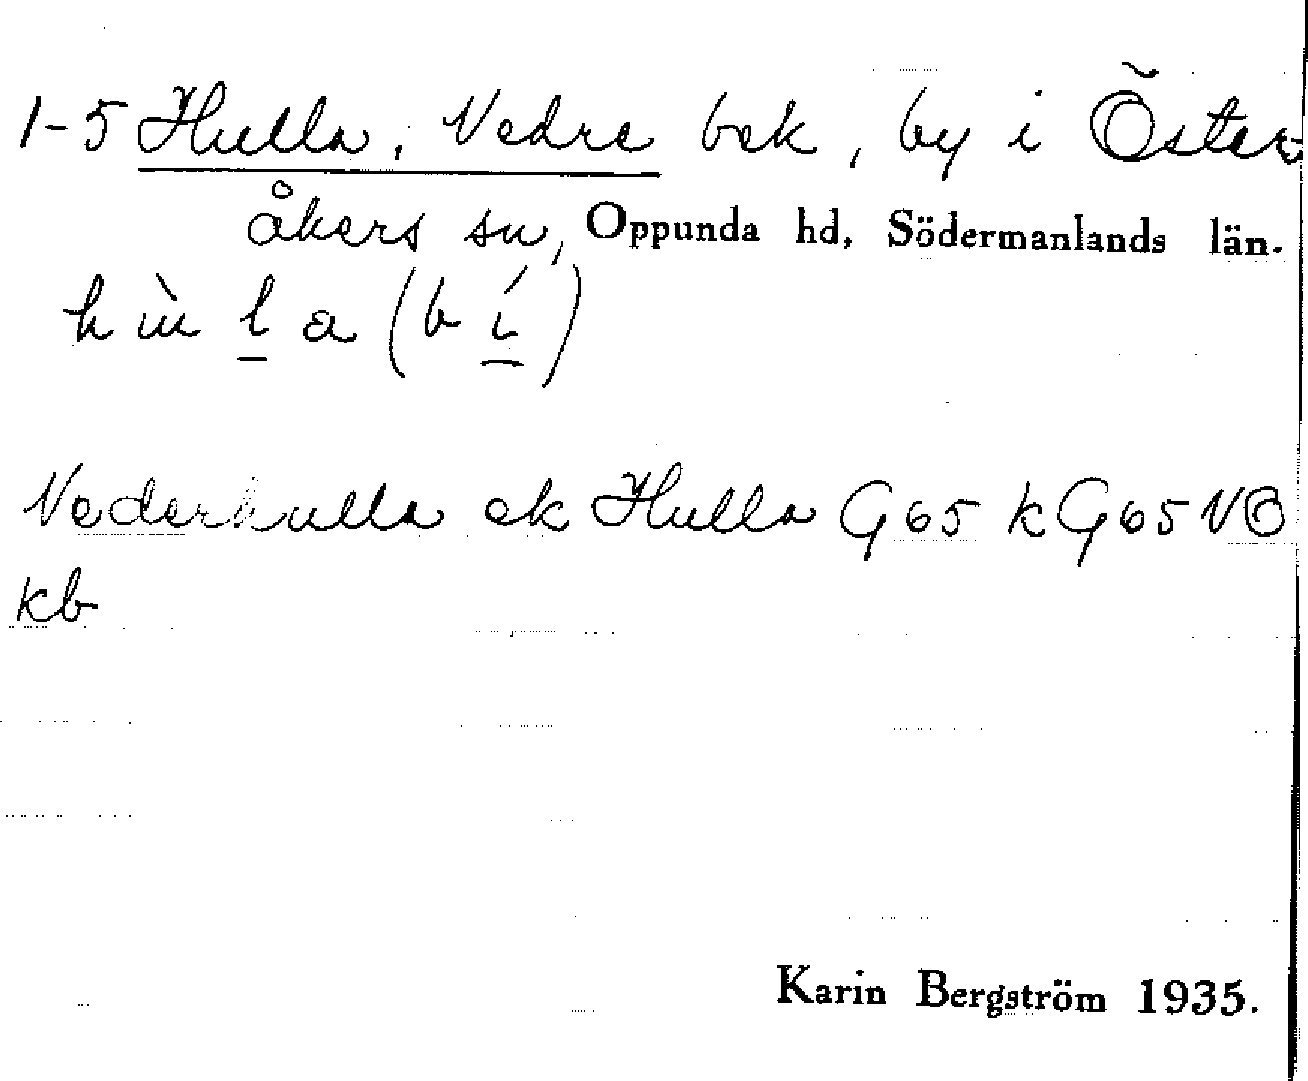 1-5 Hulla, Nedre bek, by i Öster-
åkers sn, Oppunda hd, Södermanlands län.
h ù l a (b í)
Nederhulla ek Hulla G 65 k G 65 NB
kb
Karin Bergström 1935.